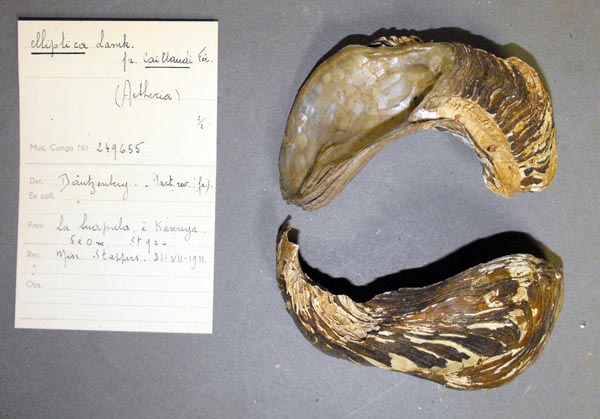 elliptica Lamk.
fa. Caillaudi Fér.
(Aetheria)
2/2.
Mus. Congo No 249655.
Det. Dautzenberg
Ex coll.
Prov. La Luapula, à Kasenga
St 92 -
Rec. Miss. Stappers. 31-VII-1911
Obs.